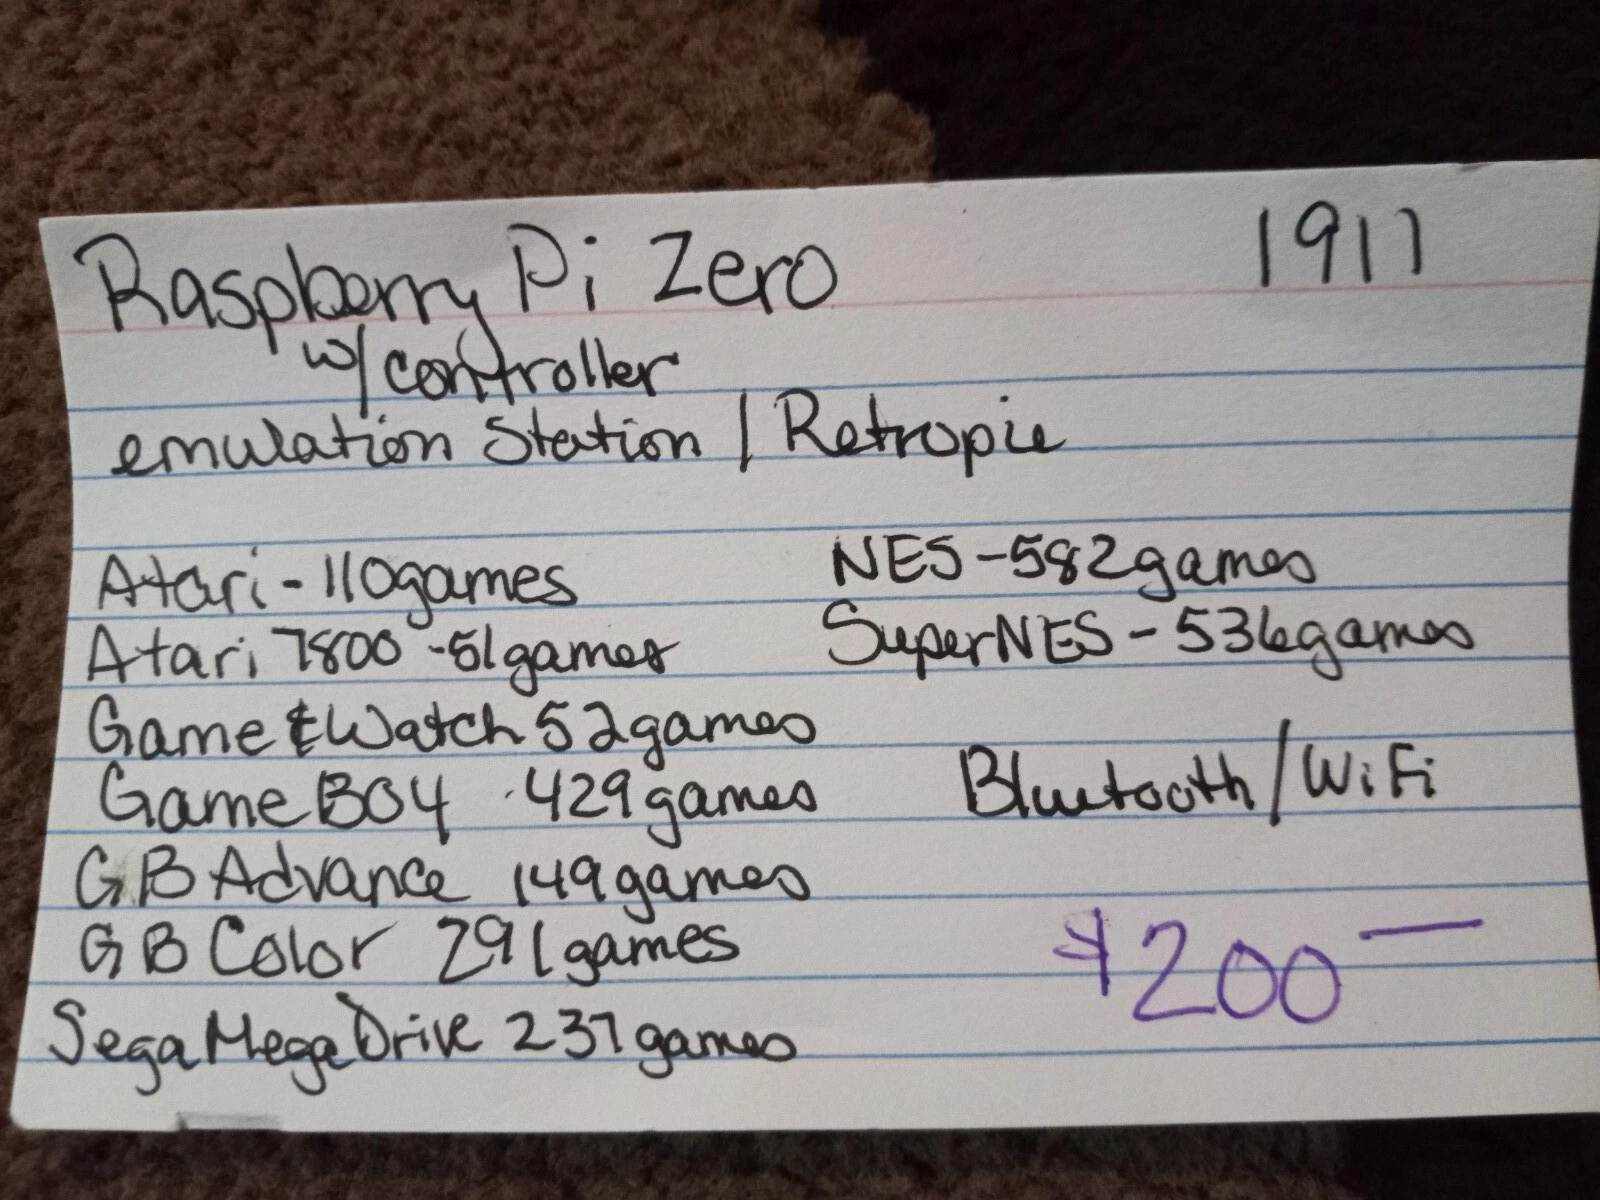 Raspberry Pi Zero 1911
w/controller
emulation Station / Retropie
Atari - 110games NES - 582games
Atari 7800 - 51games SuperNES - 536games
Game & Watch 52games
GameBOY 429games Bluetooth/WiFi
GB Advance 149games
GB Color 291games $200—
SegaMegaDrive 237games